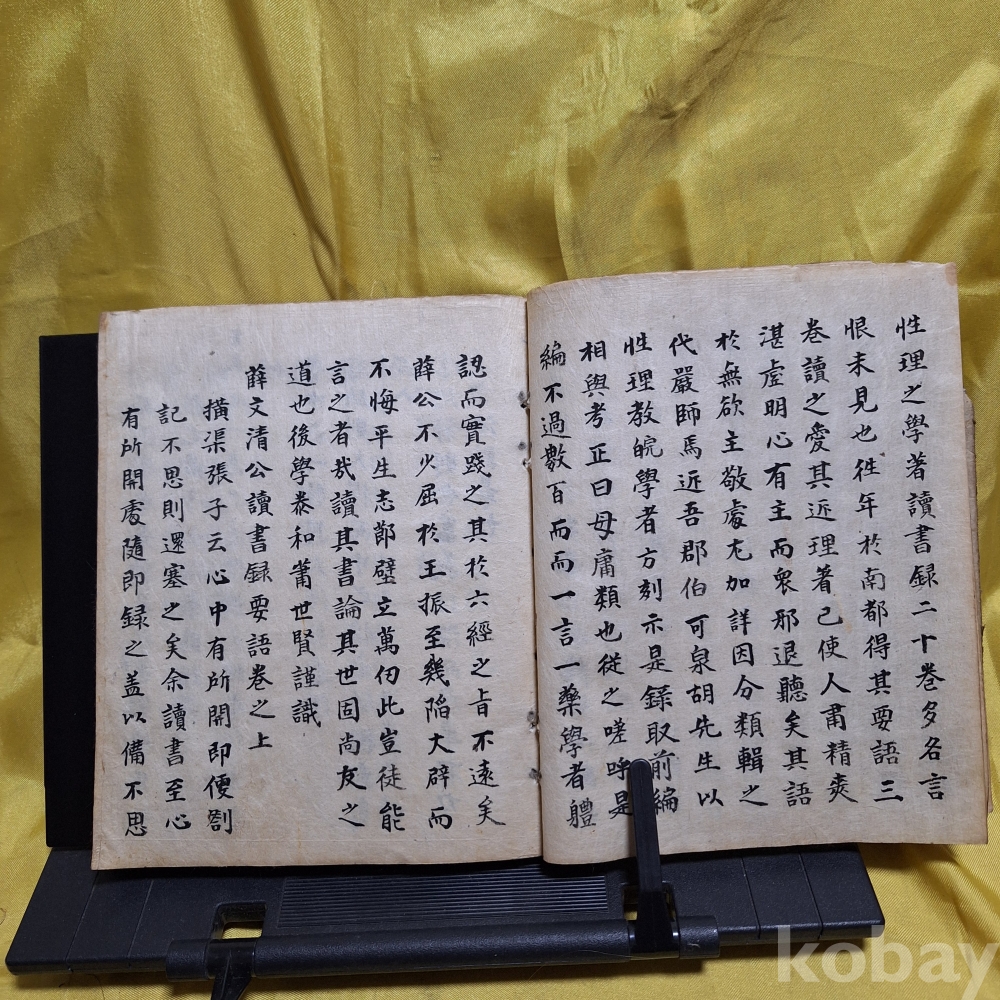 性理之學著讀書錄二十卷多名言
恨未見也徃年於南都得其要語三
卷讀之愛其近理著己使人肅精爽
湛虛明心有主而衆邪退聽矣其語
於無欲主敬處尤加詳因分類輯之
代嚴師焉近吾郡伯可泉胡先生以
性理教皖學者方刻示是録取前編
相與考正曰毋庸類也從之嗟呼是
編不過數百而而一言一藥學者軆
認而實踐之其於六經之旨不遠矣
薛公不少屈於王振至幾陷大辟而
不悔平生志鄭壁立萬仞此豈徒能
言之者哉讀其書論其世固尚友之
道也後學泰和蕭世賢謹識
薛文清公讀書録要語卷之上
横渠張子云心中有所開即便劄
記不思則還塞之矣余讀書至心
有所開處隨即録之盖以備不思
kobay